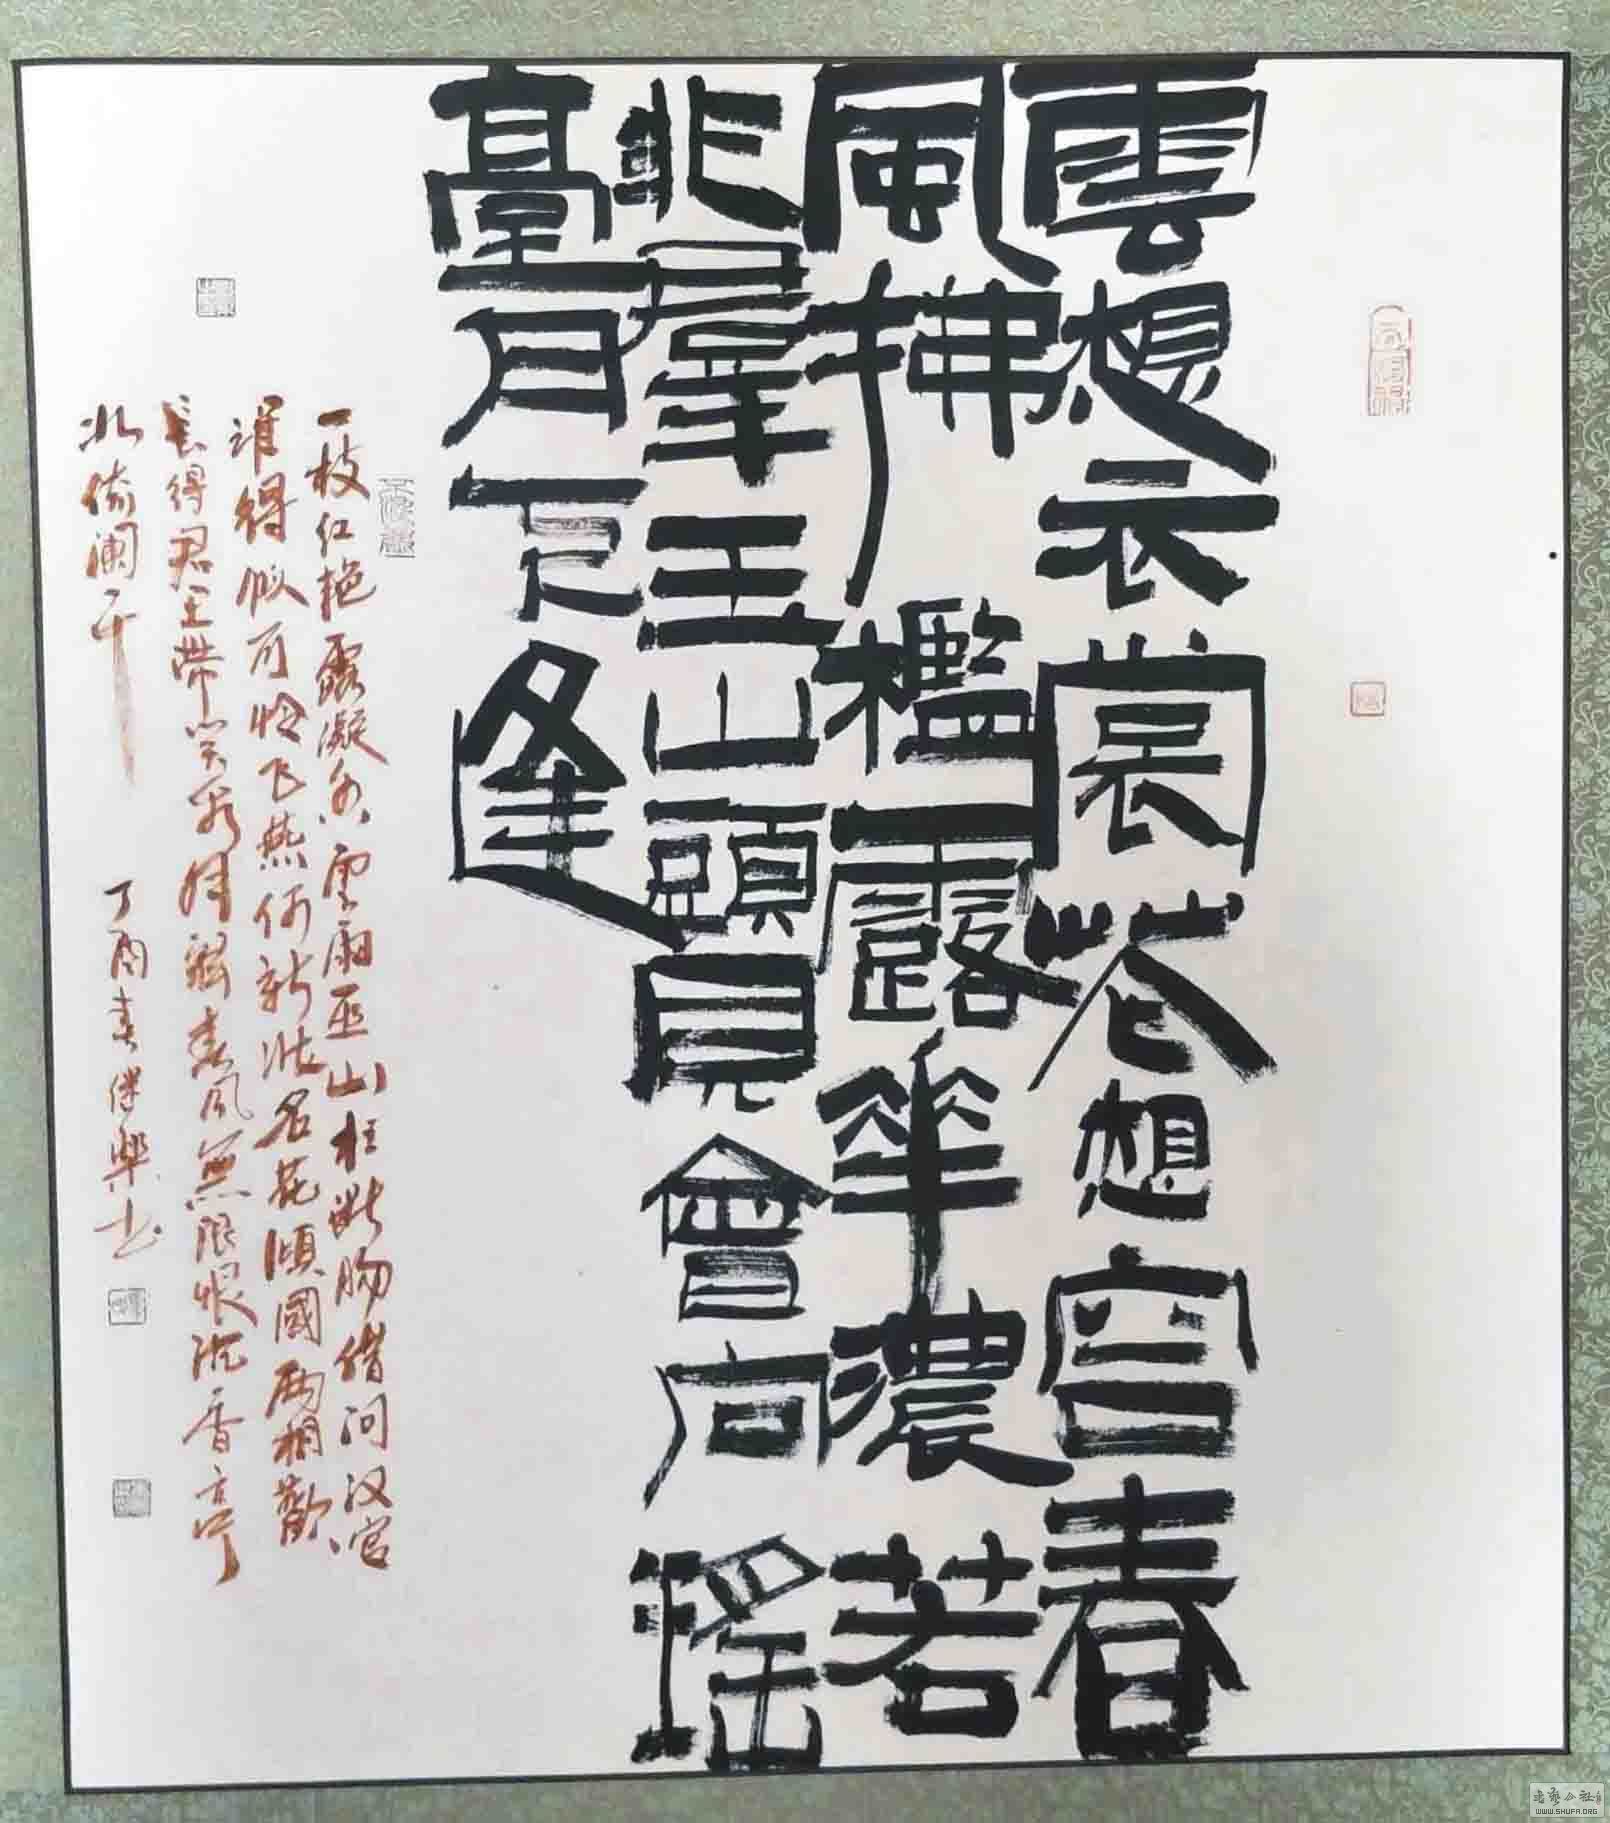 雲想衣裳花想容春
風拂檻露華濃若
非羣玉山頭見會向瑶
臺月下逢
一枝红艳露凝香雲雨巫山枉断肠借问汉宫
谁得似可怜飞燕倚新妆名花倾國两相歡
长得君王带笑看解释春风無限恨沉香亭
北倚阑干
丁酉春樂书
书艺公社
WWW.SHUFA.ORG